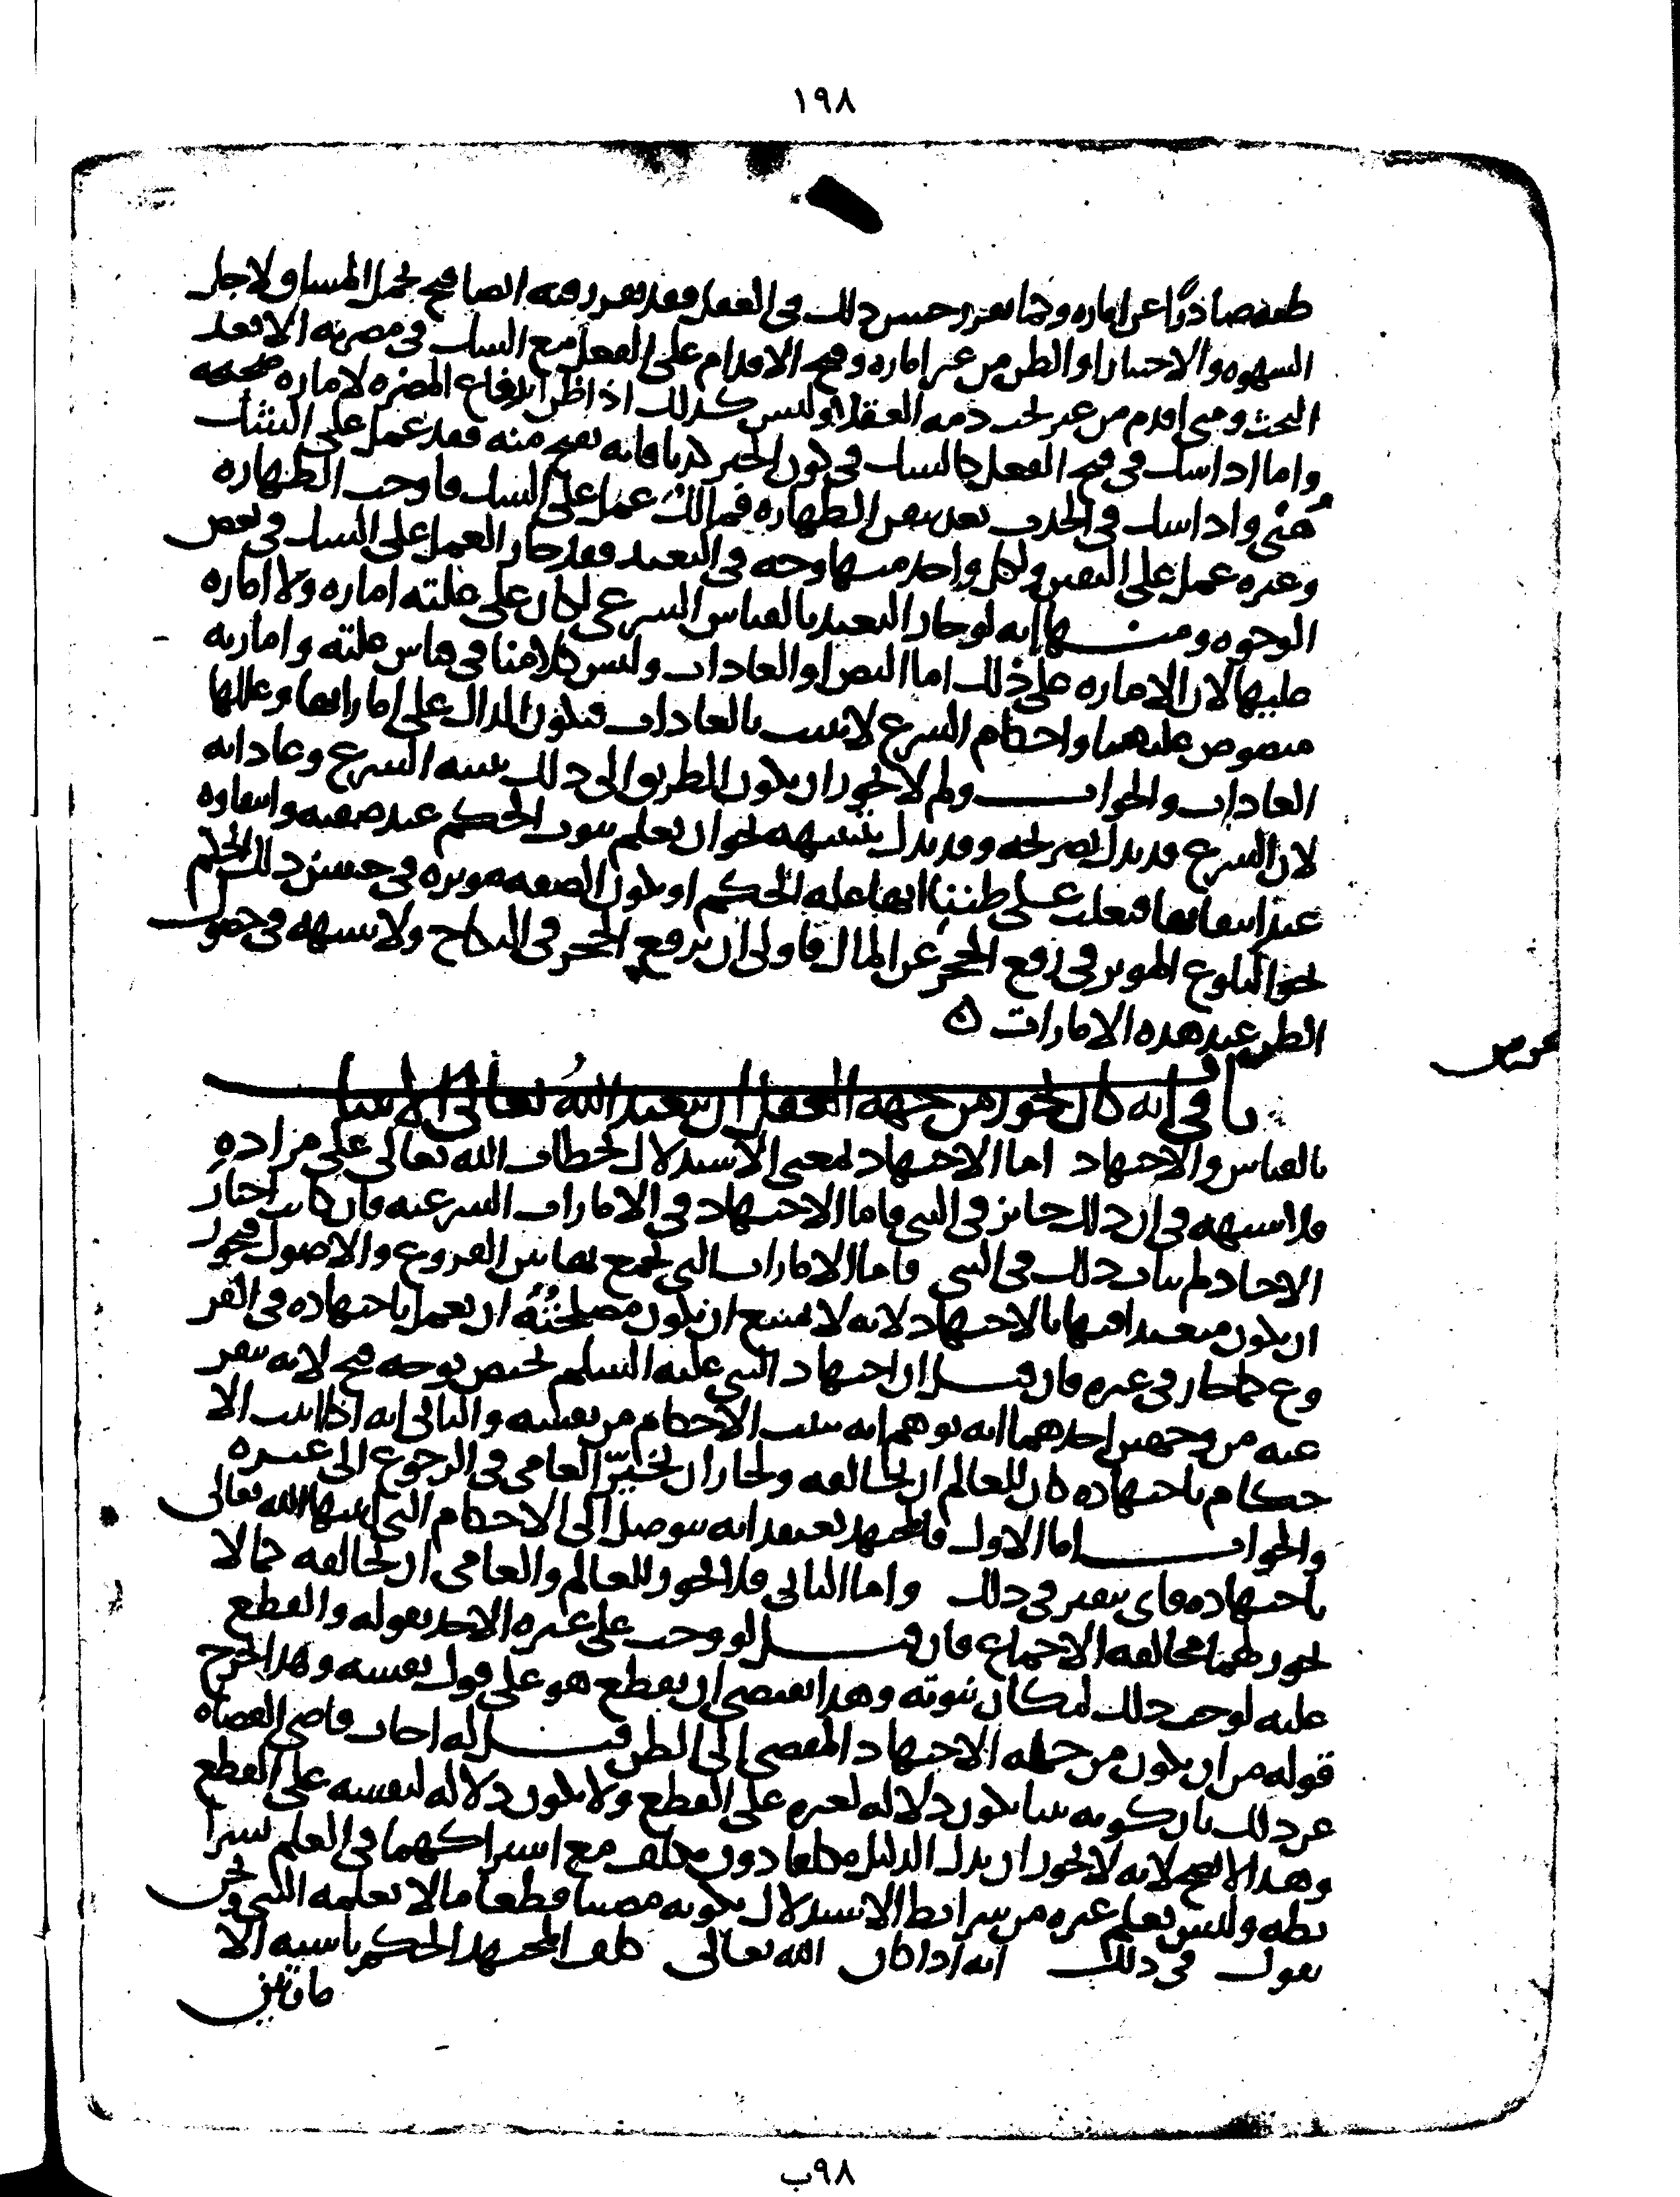 ١٩٨
ظنه صادرا عن اماره وكما تقرر حسن ذلك في العقل فقد تقرر فيه ايضا قبح تحمل المشاق لاجل
الشهوه والاختيار او الظن من غير اماره وقبح الاقدام على الفعل مع الشك في مضرته الا بعد
البحث ومتى اقدم من غير بحث ذمه العقلا وليس كذلك اذا ظن اندفاع المضره لاماره صحيحه
واما اذا شك في قبح الفعل كالشك في كون الخبر كذبا فانه يقبح منه فقد عمل على الشك
هنى واذا شك في الحدث بعد تيقن الطهاره فمالك عمل على الشك فاوجب الطهاره
وغيره عمل على اليقين ولكل واحد منهما وجه في التعبد فقد جاز العمل على الشك في بعض
الوجوه ومنها انه لو جاز التعبد بالقياس الشرعي لكان على علته اماره ولا اماره
عليها لان الاماره على ذلك اما النص او العادات وليس كلامنا في قياس علته وامارته
منصوص عليهما واحكام الشرع لا تثبت بالعادات فتكون الدال على اماراتها وعللها
العادات والجواب ولم لا يجوز ان يكون الطريق الى ذلك تنبيه الشرع وعاداته
لان الشرع قد يدل بصريحه وقد يدل بتنبيهه نحو ان يعلم ثبوت الحكم عند صفه وانتفاوه
عند انتفائها فيغلب على ظننا انها عله الحكم او يكون الصفه موثره في جنس ذلك الحكم
نحو البلوغ الموثر في رفع الحجر عن المال فاولى ان يرفع الحجر في النكاح ولا شبهه في حصول
الظن عند هذه الامارات ه
باب في انه كان يجوز من جهه العقل ان يتعبد الله تعالى الانبيا
بالقياس والاجتهاد اما الاجتهاد بمعنى الاستدلال بخطاب الله تعالى على مراده
فلا شبهه في ان ذلك جائز في النبي فاما الاجتهاد في الامارات الشرعيه فان كانت اخبار
الاحاد لم يتات ذلك في النبي فاما الامارات التي يجمع بها بين الفروع والاصول فيجوز
ان يكون متعبدا فيها بالاجتهاد لانه لا يمتنع ان يكون مصلحته ان يعمل باجتهاده في الفر
وع كما جاز في غيره فان قيل ان اجتهاد النبي عليه السلم يختص بوجه قبح لانه ينفر
عنه من وجهين احدهما انه يوهم انه يثبت الاحكام من نفسه والثاني انه اذا اثبت الا
حكام باجتهاده كان للعالم ان يخالفه ولجاز ان يخير العامي في الرجوع الى غيره
والجواب اما الاول فالمجتهد يعتقد انه يتوصل الى الاحكام التي اثبتها الله تعالى
باجتهاده فاي تنفير في ذلك واما الثاني فلا يجوز للعالم والعامي ان يخالفه كما لا
يجوز لهما مخالفه الاجماع فان قيل لو وجب على غيره الاخذ بقوله والقطع
عليه لوجب ذلك لمكان نبوته وهذا يقتضي ان يقطع هو على قول نفسه وهذا يخرج
قوله من ان يكون من جمله الاجتهاد المفضي الى الظن قيل له اجاب قاضي القضاه
عن ذلك بان كونه نبيا يكون دلاله لغيره على القطع ولا يكون دلاله لنفسه على القطع
وهذا لا يصح لانه لا يجوز ان يدل الدليل مكلفا دون مكلف مع اشتراكهما في العلم بشرا
يطه وليس يعلم غيره من شرائط الاستدلال بكونه مصيبا قطعا ما لا يعلمه النبي ونحن
نقول في ذلك انه اذا كان الله تعالى كلف المجتهد الحكم باشبه الا
مارتين
٩٨ب